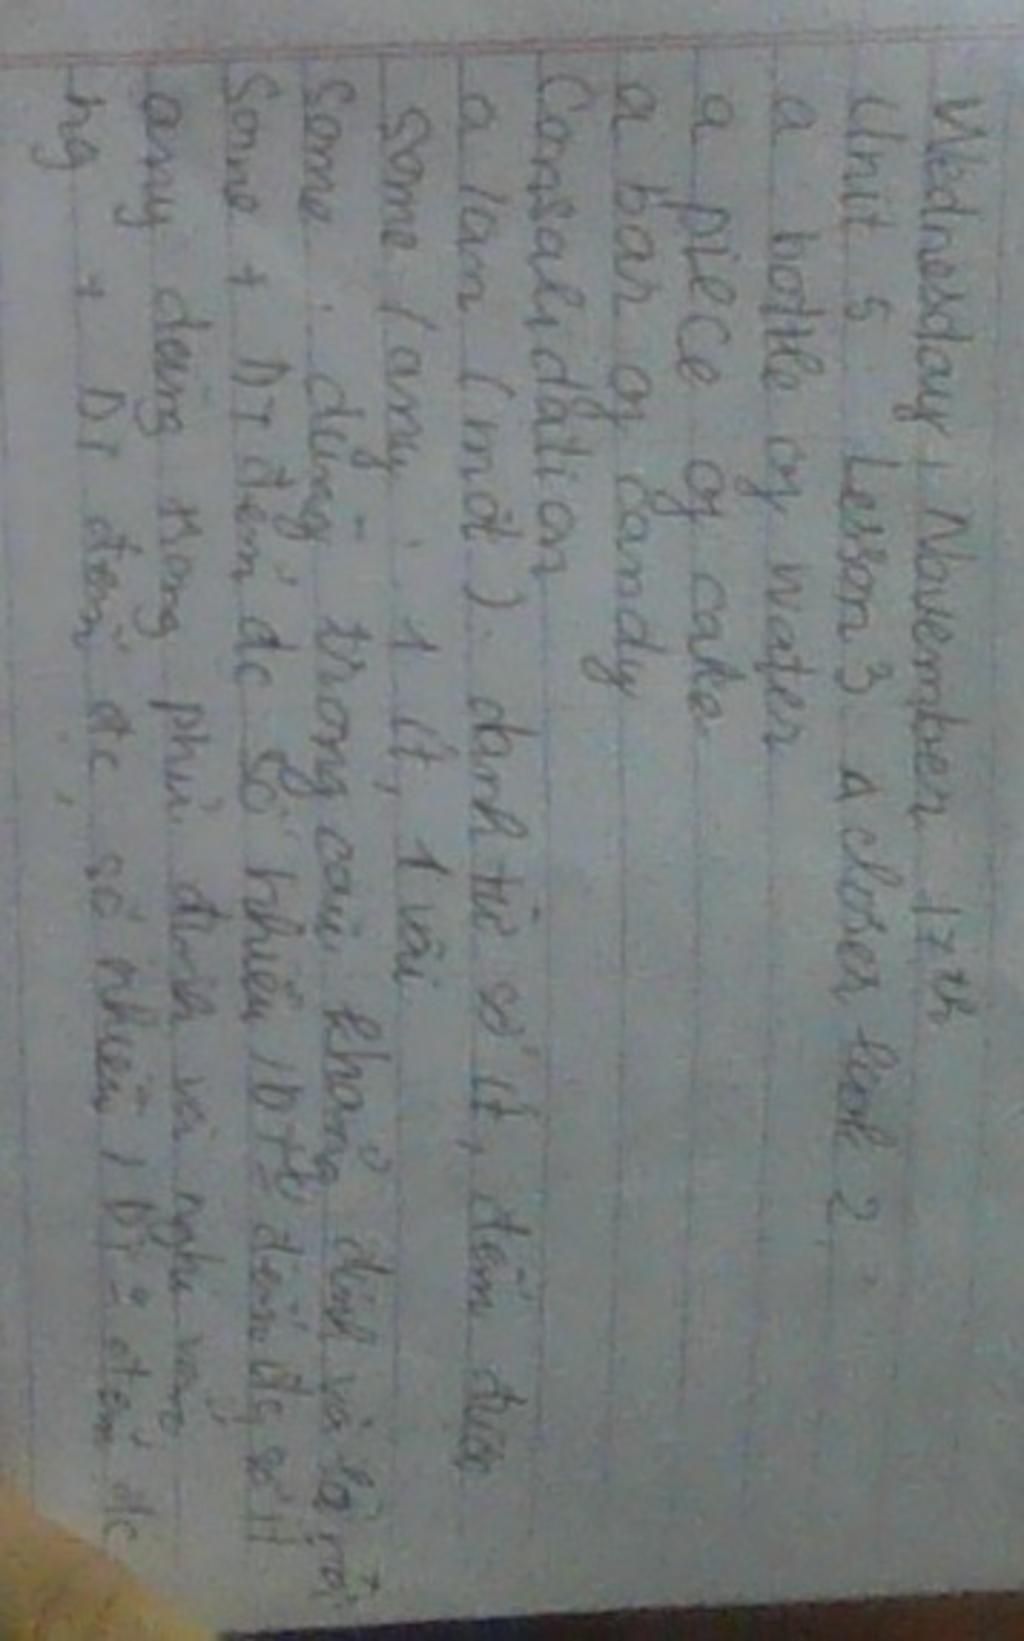 Wednesday, November 17th
Unit 5 Lesson 3 A closer look 2
a bottle of water
a piece of cake
a bar of candy
Consolidation
a /an (một). danh từ số ít, đếm được
some / any : 1 ít, 1 vài
Some : dùng trong câu khẳng định và lời mời
Some + DT đếm đc số nhiều / DT đếm đc số ít
any dùng trong phủ định và nghi vấn
+ DT đếm đc số nhiều / DT đếm đc